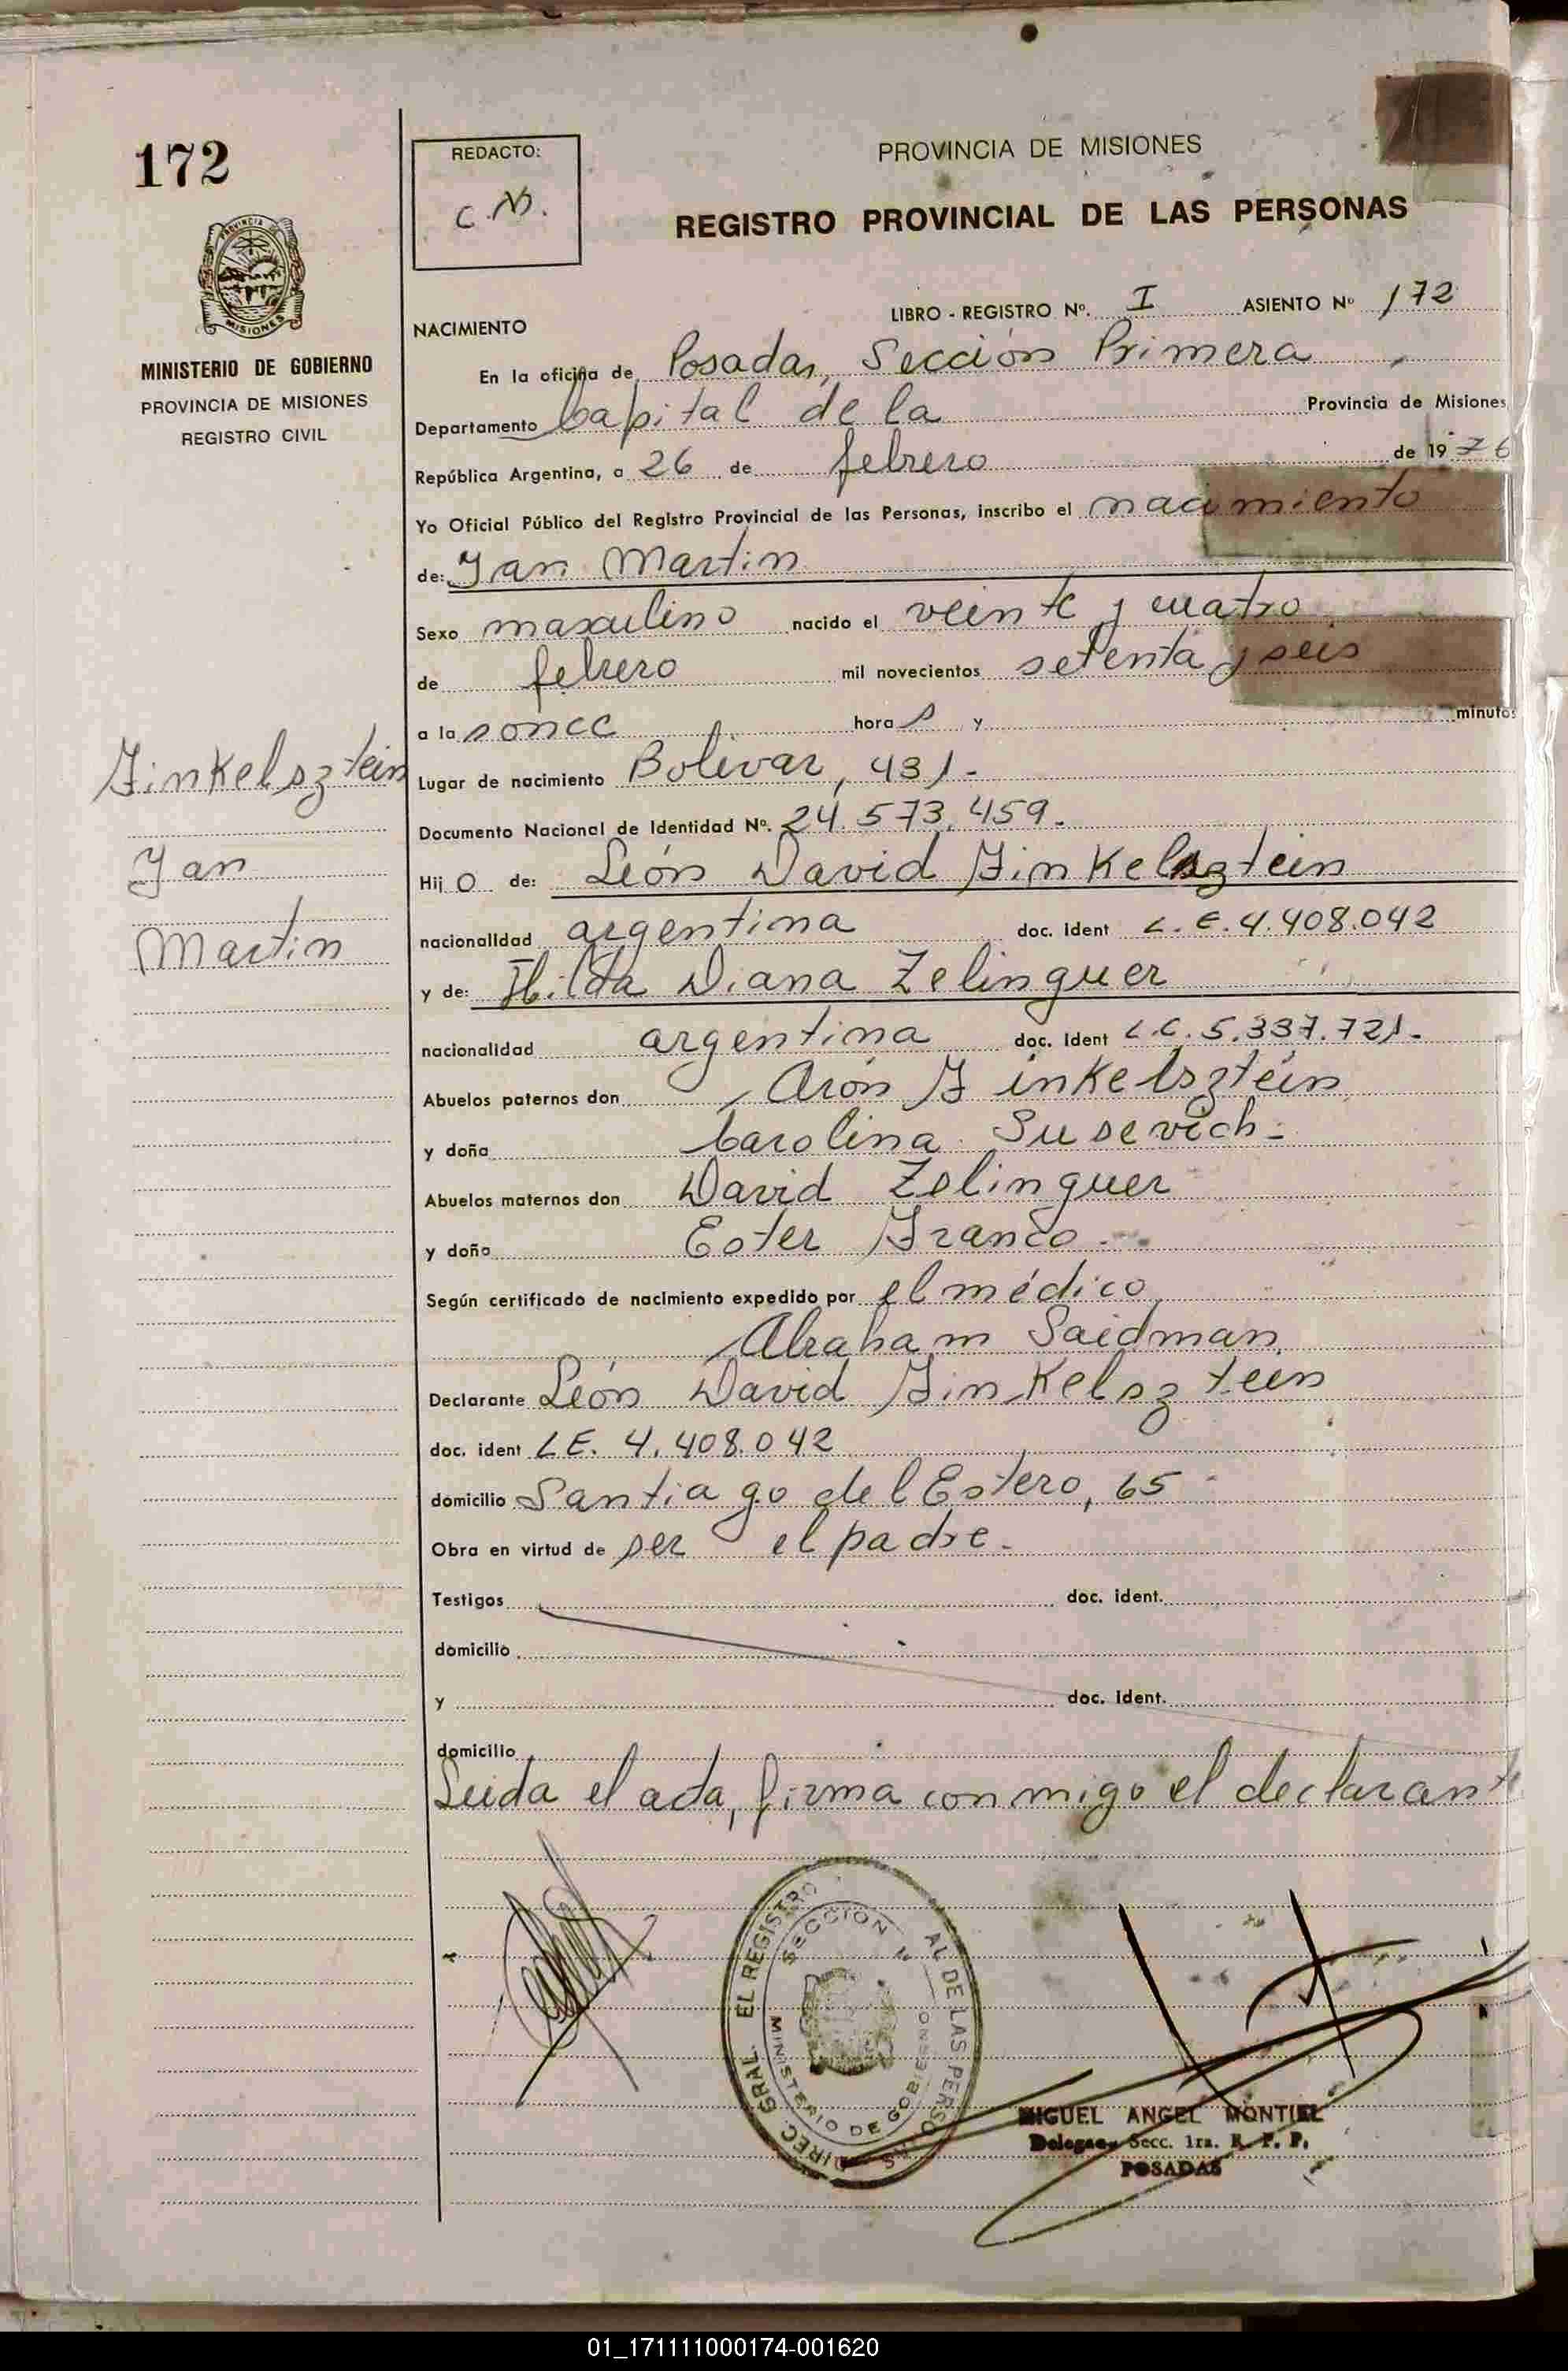 172
PROVINCIA DE
MISIONES
MINISTERIO DE GOBIERNO
PROVINCIA DE MISIONES
REGISTRO CIVIL
REDACTO:
C. N.
PROVINCIA DE MISIONES
REGISTRO PROVINCIAL DE LAS PERSONAS
LIBRO - REGISTRO Nº. I ASIENTO Nº 172
NACIMIENTO
En la oficina de Posadas, Sección Primera,
Departamento Capital de la Provincia de Misiones
República Argentina, a 26 de febrero de 1976
Yo Oficial Público del Registro Provincial de las Personas, inscribo el nacimiento
de: Ian Martin
Sexo masculino nacido el veinte y cuatro
de febrero mil novecientos setenta y seis
a la s once hora s y minutos
Lugar de nacimiento Bolivar, 431.-
Documento Nacional de Identidad Nº. 24.573.459.
Hij o de: León David Finkelsztein
nacionalidad argentina doc. Ident L.E. 4.408.042
y de: Hilda Diana Zelinguer
nacionalidad argentina doc. Ident L.C. 5.337.721.
Abuelos paternos don Arón Finkelsztein
y doña Carolina Susevich-
Abuelos maternos don David Zelinguer
y doña Ester Franco.-
Según certificado de nacimiento expedido por el médico
Abraham Saidman
Declarante León David Finkelsztein
doc. ident LE. 4.408.042
domicilio Santiago del Estero, 65
Obra en virtud de ser el padre.
Testigos doc. ident.
domicilio
y doc. ident.
domicilio
Leida el acta, firma conmigo el declarante
Finkelsztein
Ian
Martin
DIREC. GRAL. EL REGISTRO AL DE LAS PERSO
SECCION Nº
MINISTERIO DE GOBIERNO
MIGUEL ANGEL MONTIEL
Delegado Secc. 1ra. R. P. P.
POSADAS
01_171111000174-001620